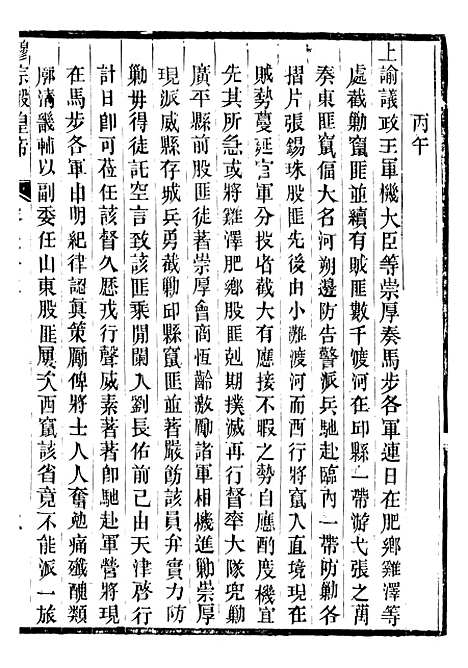 丙午
上諭議政王軍機大臣等崇厚奏馬步各軍連日在肥鄉雞澤等
處截勦竄匪並續有賊匪數千渡河在邱縣一帶游弋張之萬
奏東匪竄偪大名河朔邊防告警派兵馳赴臨內一帶防勦各
摺片張錫珠股匪先後由小灘渡河而西行將竄入直境現在
賊勢蔓延官軍分投堵截大有應接不暇之勢自應酌度機宜
先其所急或將雞澤肥鄉股匪剋期撲滅再行督率大隊兜勦
廣平縣前股匪徒著崇厚會商恆齡激勵諸軍相機進勦崇厚
現派威縣存城兵勇截勦邱縣竄匪並著嚴飭該員弁實力防
勦毋得徒託空言致該匪乘閒闌入劉長佑前已由天津啓行
計日卽可莅任該督久歷戎行聲威素著著卽馳赴軍營將現
在馬步各軍申明紀律認眞策勵俾將士人人奮勉痛殲醜類
廓清畿輔以副委任山東股匪屢次西竄該省竟不能派一旅
穆宗毅皇帝